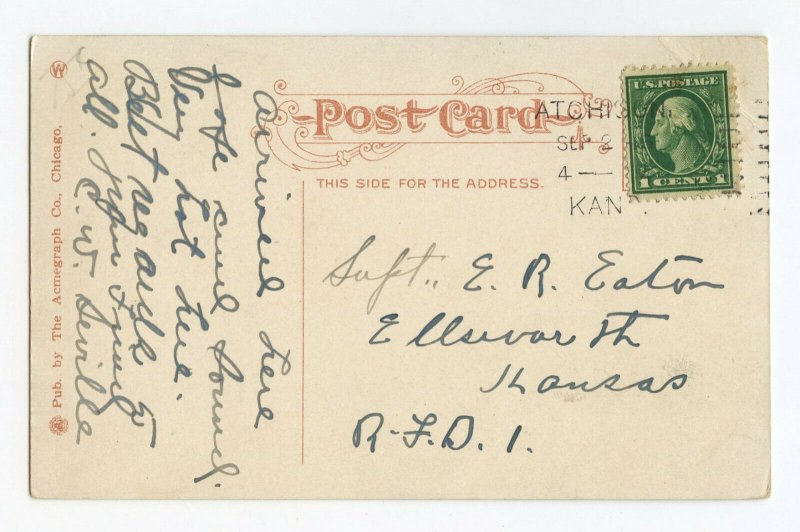 Post Card
THIS SIDE FOR THE ADDRESS.
ATCHISON,
SEP 2
4 —
KAN
U.S. POSTAGE
1 CENT 1
Supt., E. R. Eaton
Ellsworth
Kansas
R.F.D. 1.
arrived here
safe and sound.
Very hot here.
Best regards to
all. Your friend
C. W. Seville
Pub. by The Acmegraph Co., Chicago.
W
A